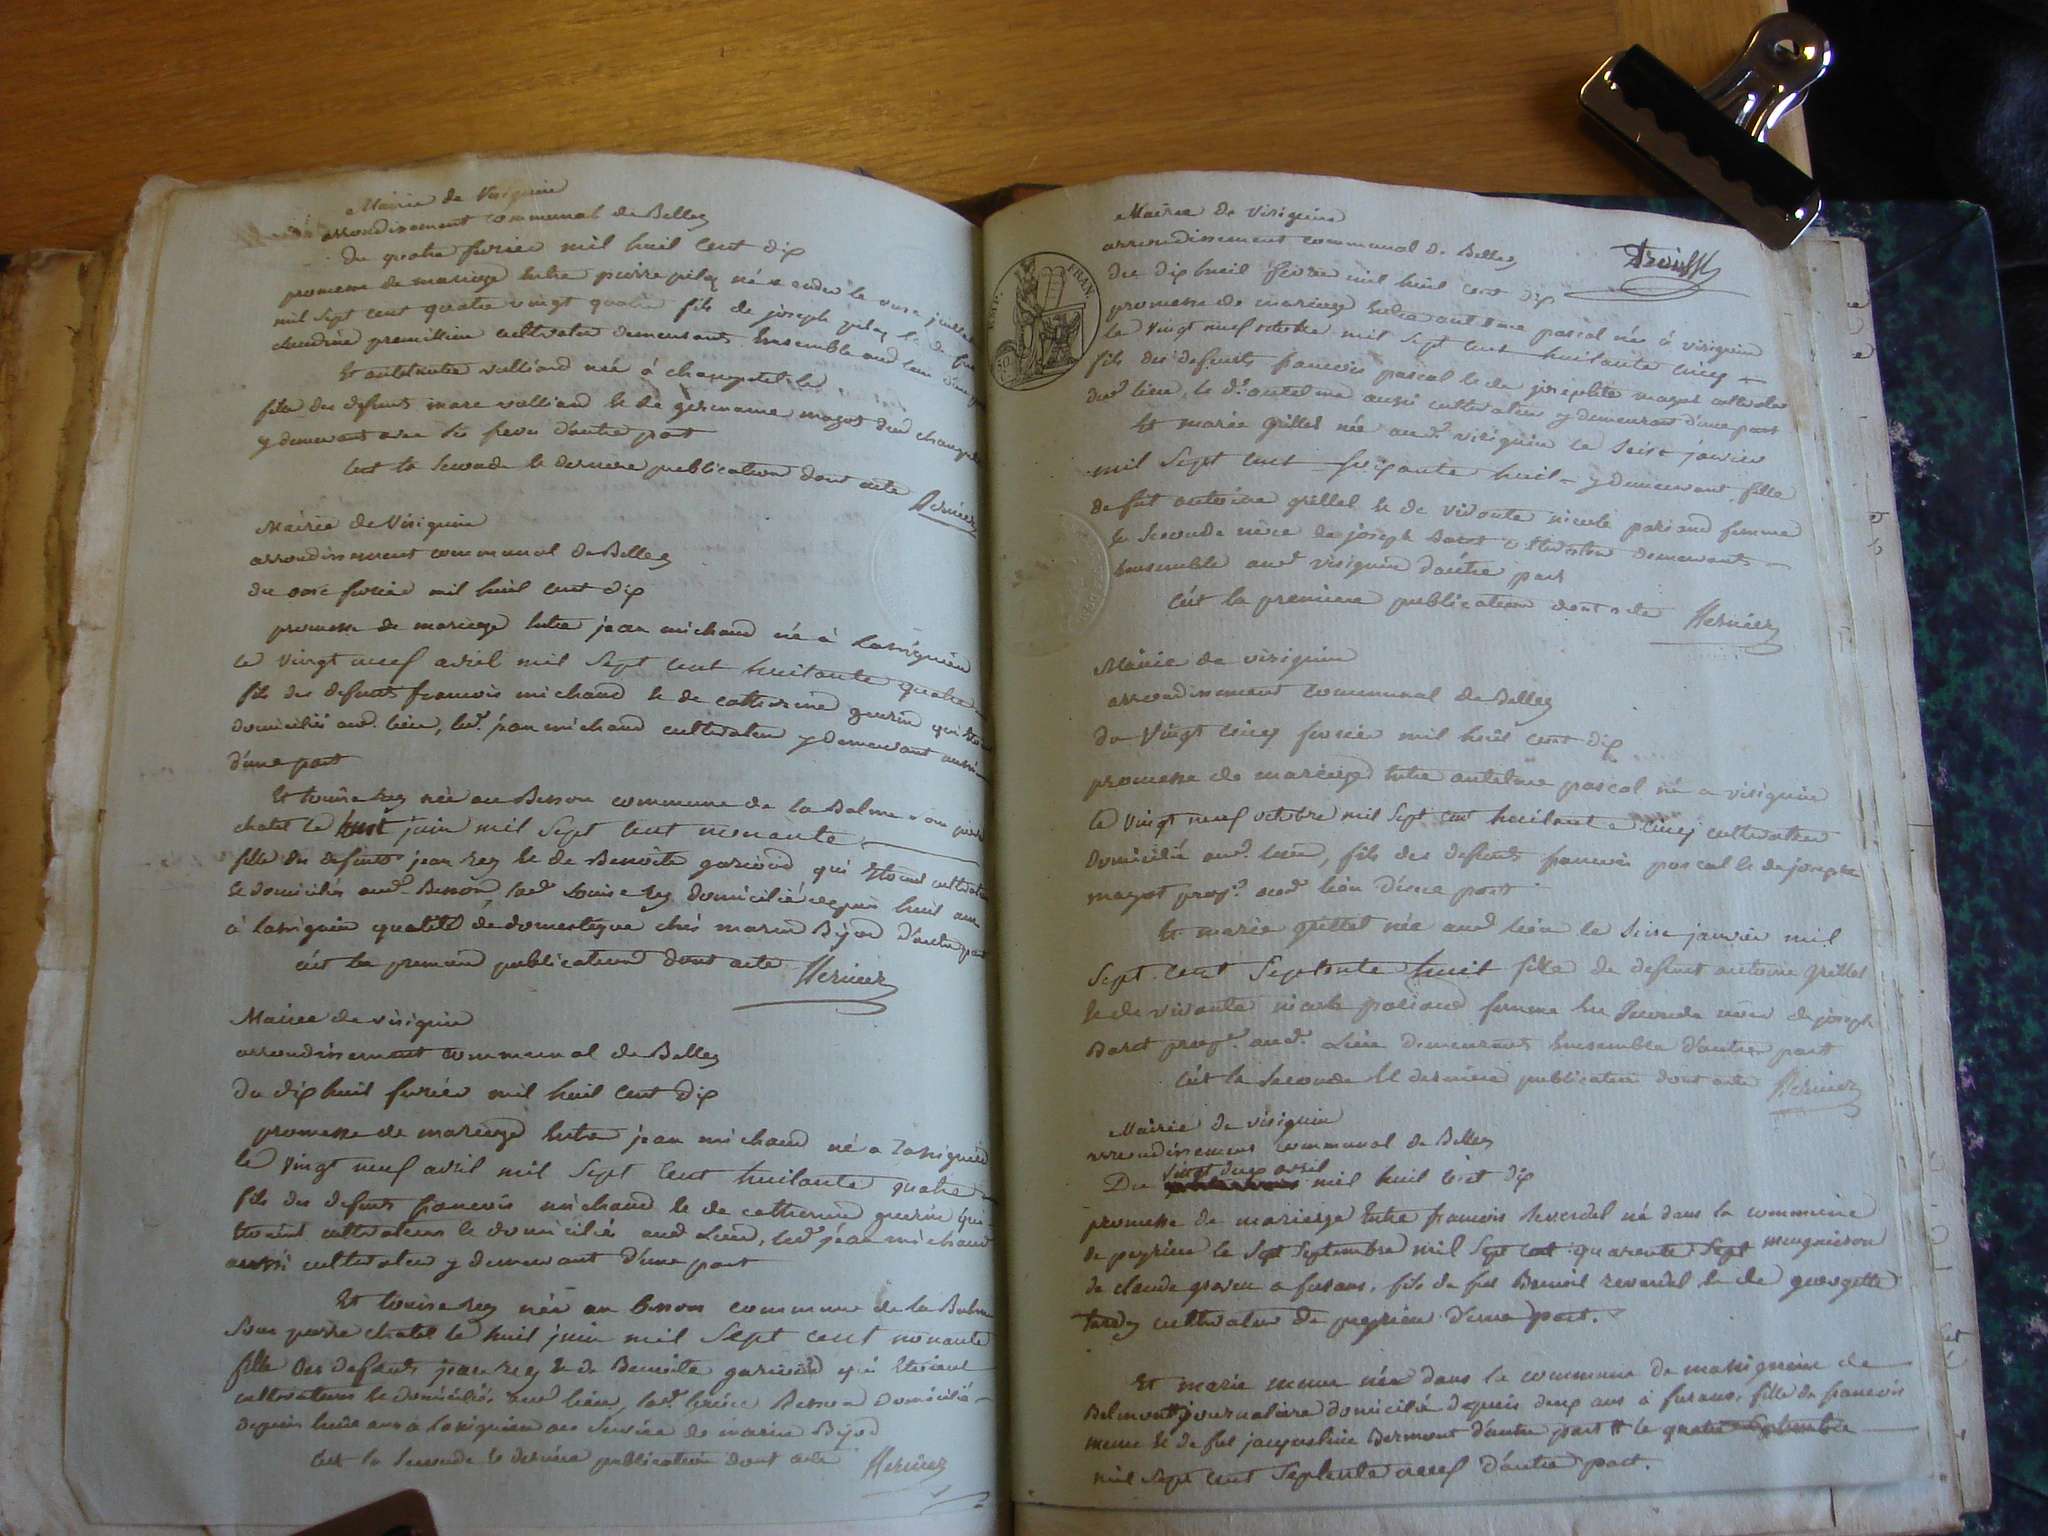 Mairie de Virignin
arrondissement communal de Belley
du quatre fevrier mil huit cent dix
promesse de mariage entre pierre pilaz né a andert le onze juillet
mil sept cent quatre vingt quatre fils de joseph pilaz & de
claudine premillieu cultivateur demeurants ensemble aud lieu d'une part
Et anthelmette vulliand née à champtel le
fille des defunts marc vulliand & de germaine magot dud champtel
y demeurant avec ses freres d'autre part
C'est la seconde & derniere publication dont acte Hernier
Mairie de Virignin
arrondissement communal de Belley
du onze fevrier mil huit cent dix
promesse de mariage entre jean michaud né à Lassignieu
le vingt neuf avril mil sept cent huitante quatre
fils des defunts francois michaud & de catherine guerin qui étoient
domiciliés aud. lieu, led. jean michaud cultivateur y demeurant aussi
d'une part
Et louise rey née au Besson commune de la Balme sous pierre
chatel le huit juin mil sept cent nonante
fille des defunts jean rey & de Benoite garioud qui étoient cultivateurs
& domiciliés aud. Besson, lad. Louise rey domiciliée depuis huit ans
à Lassignieu qualité de domestique chés marin Bijod d'autre part
c'est la premiere publication dont acte Hernier
Mairie de virignin
arrondissement communal de Belley
du dix huit fevrier mil huit cent dix
promesse de mariage entre jean michaud né a Lassignieu
le vingt neuf avril mil sept cent huitante quatre
fils des defunts francois michaud & de catherine guerin qui
étoient cultivateurs & domiciliés aud Lieu, led. jean michaud
aussi cultivateur y demeurant d'une part
Et louise rey née au besson commune de la Balme
sous pierre chatel le huit juin mil sept cent nonante
fille des defunts jean rey & de Benoite garioud qui étoient
cultivateurs & domiciliés aud lieu, lad. louise Besson domiciliée
depuis huit ans à Lassignieu au service de marin Bijod
C'est la seconde & derniere publication dont acte Hernier
Mairie de virignin
arrondissement communal de Belley
du dix huit fevrier mil huit cent dix
EMP. FRAN.
promesse de mariage entre antelme pascal né à virignin
le vingt neuf octobre mil sept cent huitante cinq
fils des defunts francois pascal & de josephte magot cultivateur
dud lieu, le d. antelme aussi cultivateur y demeurant d'une part
Et marie grillet née aud. virignin le seize janvier
mil sept cent septante huit y demeurant, fille
de fut antoine grillet & de vivante nicole pariaud femme
en seconde nôce de joseph Baret cultivateur demeurants
ensemble aud. virignin d'autre part
C'est la premiere publication dont acte Hernier
Mairie de virignin
arrondissement communal de Belley
du Vingt cinq fevrier mil huit cent dix
promesse de mariage entre antelme pascal né a virignin
le vingt neuf octobre mil sept cent huitante cinq cultivateur
domicilié aud. lieu, fils des defunts francois pascal & de josephte
magot prop.re aud. lieu d'une part
Et marie grillet née aud lieu le seize janvier mil
sept cent septante huit fille de defunt antoine grillet
& de vivante nicole pariaud femme en seconde nôce de joseph
Baret prop.re aud. Lieu demeurants ensemble d'autre part
C'est la seconde & derniere publication dont acte Hernier
Mairie de virignin
arrondissement communal de Belley
Du vingt deux avril mil huit cent dix
promesse de mariage entre francois Reverdel né dans la commune
de peyrieu le sept septembre mil sept cent quarante sept
de claude a furans, fils de fut Benoit reverdel & de georgette
tardy cultivateur de peyrieu d'une part.
Et marie née dans la commune de massignieu de
Belmont journaliere domiciliée depuis deux ans à furans, fille de francois
& de fut jacqueline Bermont d'autre part le quatre septembre
mil sept cent septente neuf d'autre part.